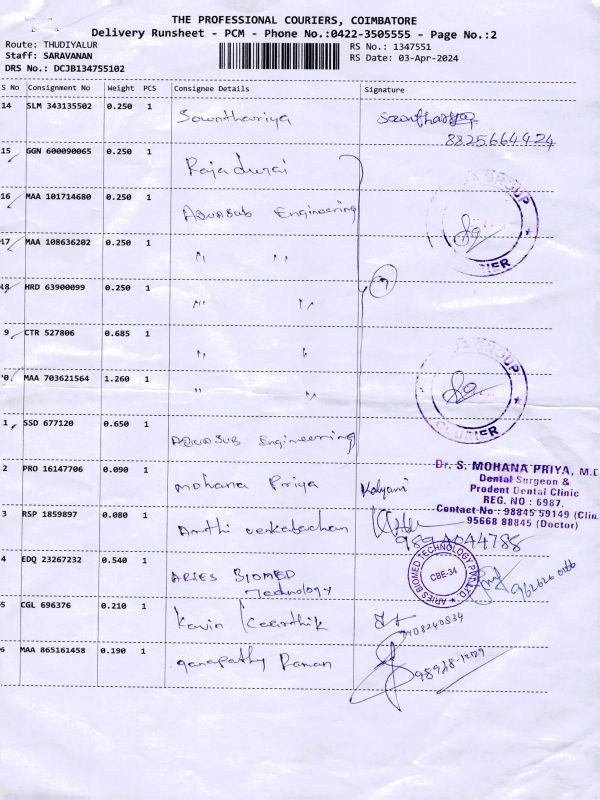 THE PROFESSIONAL COURIERS, COIMBATORE
Delivery Runsheet - PCM - Phone No.:0422-3505555 - Page No.:2
Route: THUDIYALUR
RS No.: 1347551
Staff: SARAVANAN
RS Date: 03-Apr-2024
DRS No.: DCJB134755102
S No Consignment No Weight PCS Consignee Details Signature
14 SLM 343135502 0.250 1 Sownthariya
8825664424
15 GGN 600090065 0.250 1 Rajadurai
16 MAA 101714680 0.250 1 Aquasub Engineering
17 MAA 108636202 0.250 1 " "
18 HRD 63900099 0.250 1 " "
7
9 CTR 527806 0.685 1 " "
0 MAA 703621564 1.260 1 " "
1 SSD 677120 0.650 1 Aquasub Engineering
GROUP
COURIER
2 PRO 16147706 0.090 1 Mohana Priya Kalyani
Dr. S. MOHANA PRIYA, M.D
Dental Surgeon &
Prodent Dental Clinic
REG. NO : 6987.
Contact No : 98845 59149 (Clin.
95668 88845 (Doctor)
3 RSP 1859897 0.080 1
9894044788
4 EDQ 23267232 0.540 1 ARIES BIOMED
Technology
ARIES BIOMED TECHNOLOGY PVT LTD
CBE-34
5 CGL 696376 0.210 1 Kavin Keerthik
9708240834
6 MAA 865161458 0.190 1 ganapathy Raman